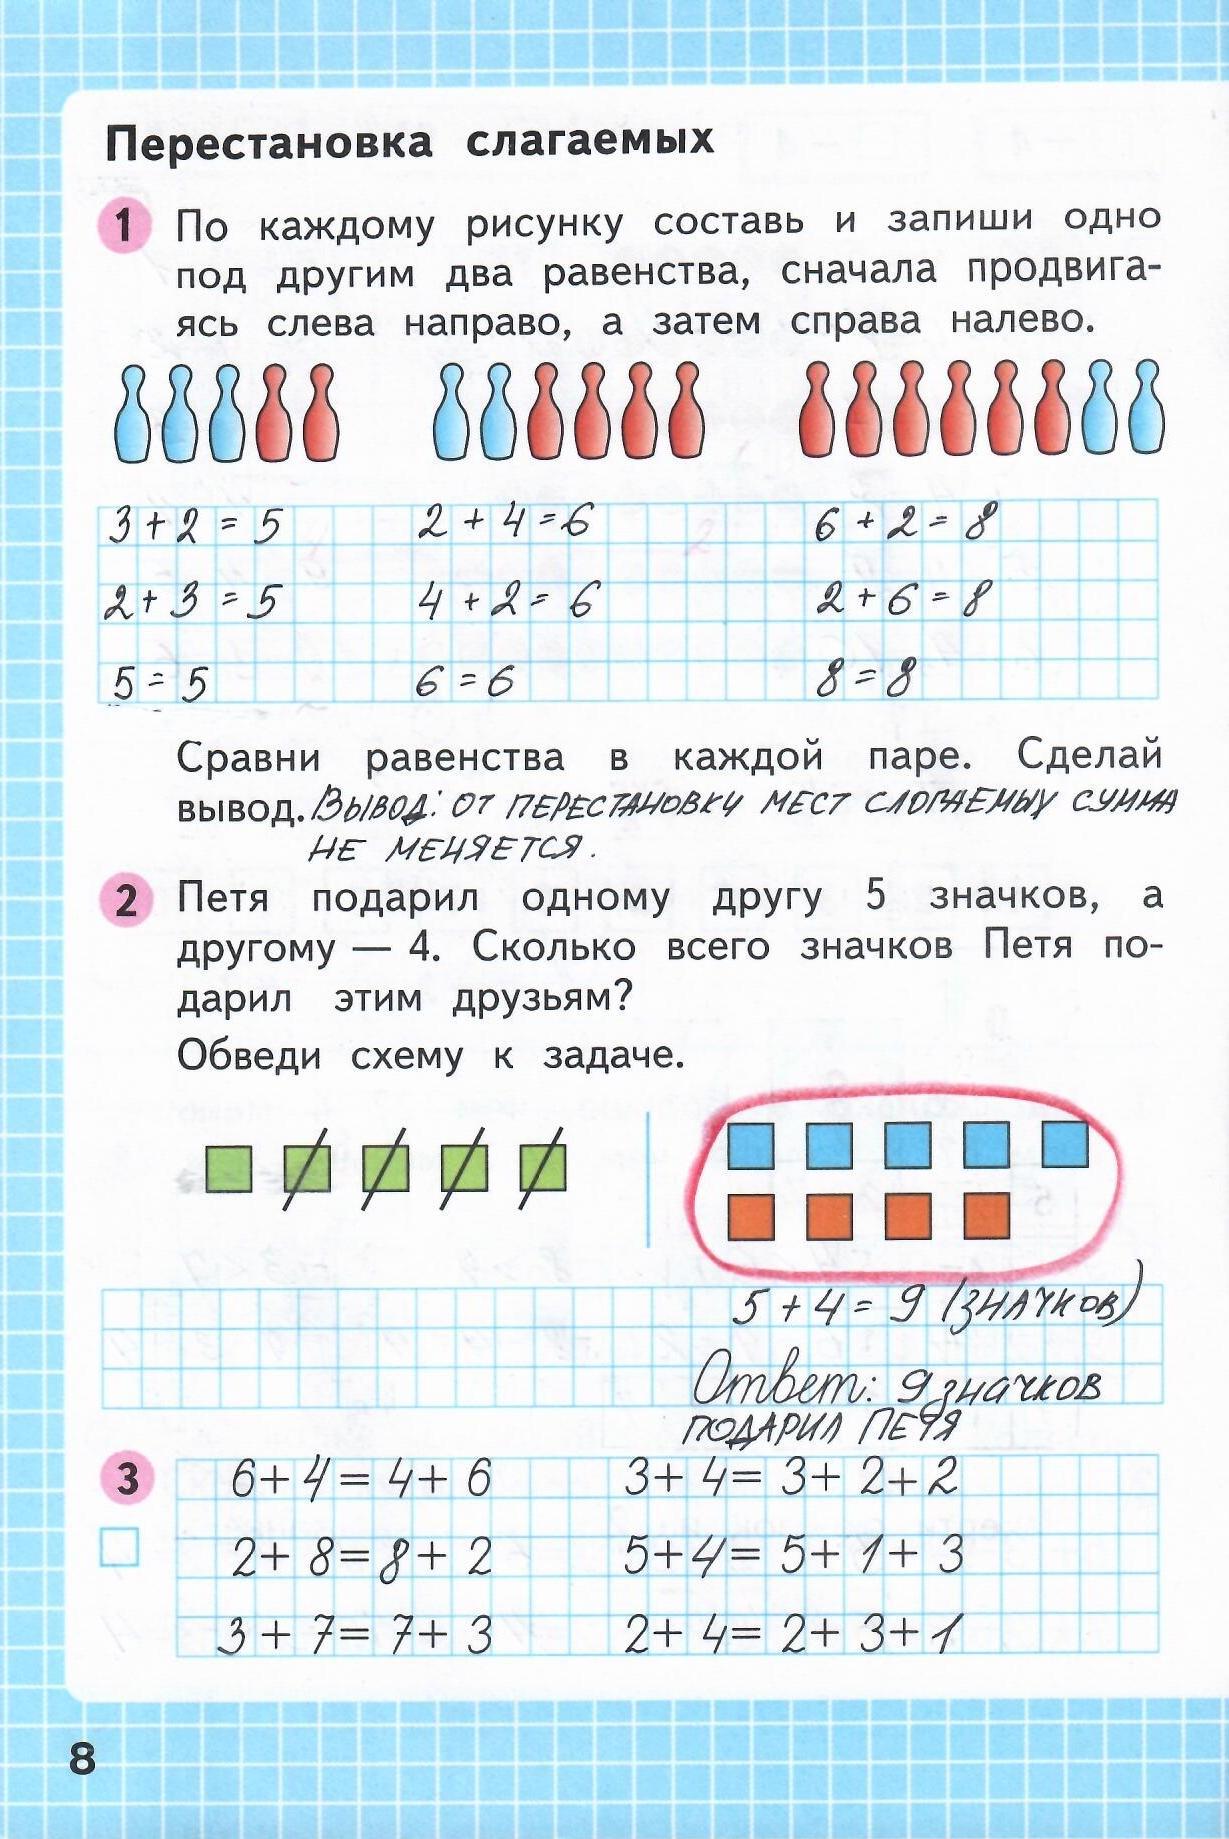 Перестановка слагаемых
1 По каждому рисунку составь и запиши одно
под другим два равенства, сначала продвига-
ясь слева направо, а затем справа налево.
3 + 2 = 5 2 + 4 = 6 6 + 2 = 8
2 + 3 = 5 4 + 2 = 6 2 + 6 = 8
5 = 5 6 = 6 8 = 8
Сравни равенства в каждой паре. Сделай
вывод. Вывод: от перестановки мест слогаемых сумма
не меняется.
2 Петя подарил одному другу 5 значков, а
другому — 4. Сколько всего значков Петя по-
дарил этим друзьям?
Обведи схему к задаче.
5 + 4 = 9 (значков)
Ответ: 9 значков
подарил Петя
3 6 + 4 = 4 + 6 3 + 4 = 3 + 2 + 2
2 + 8 = 8 + 2 5 + 4 = 5 + 1 + 3
3 + 7 = 7 + 3 2 + 4 = 2 + 3 + 1
8